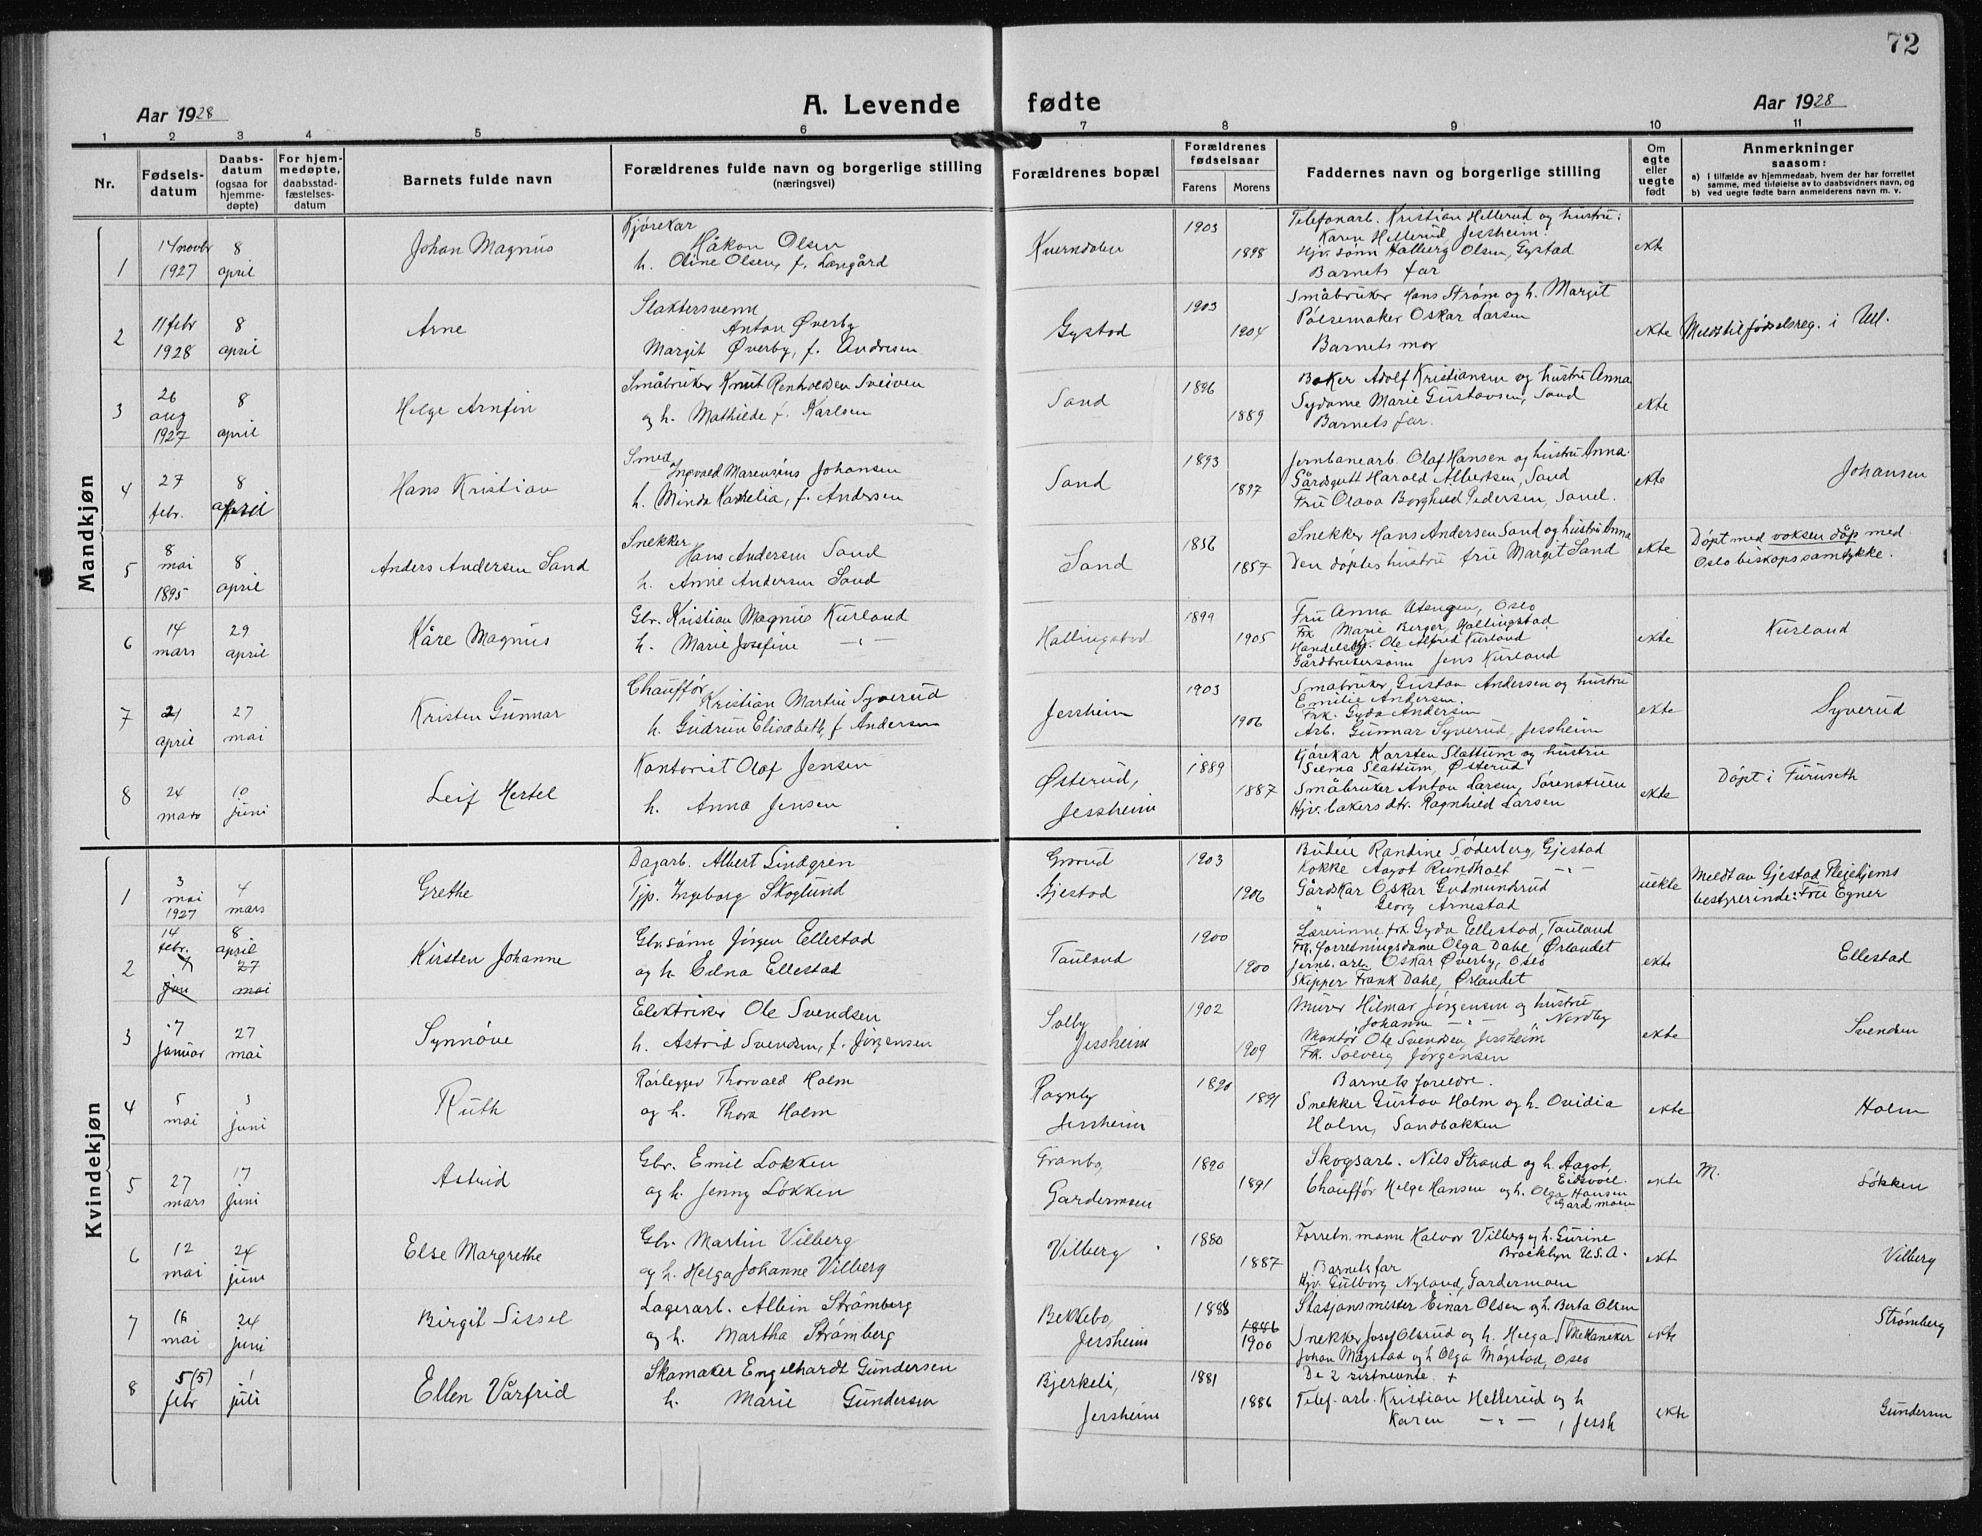 72
Aar 1928
A. Levende fødte
Aar 1928
1 2 3 4 5 6 7 8 9 10 11
Nr.
Fødsels-
datum
Daabs-
datum
(ogsaa for
hjemme-
døpte)
For hjem-
medøpte,
daabsstad-
fæstelses-
datum
Barnets fulde navn
Forældrenes fulde navn og borgerlige stilling
(næringsvei)
Forældrenes bopæl
Forældrenes
fødselsaar
Farens Morens
Faddernes navn og borgerlige stilling
Om
egte
eller
uegte
født
Anmerkninger
saasom:
a) i tilfælde av hjemmedaab, hvem der har forrettet
samme, med tilføielse av to daabsvidners navn, og
b) ved uegte fødte barn anmelderens navn m. v.
Mandkjøn
1
14 novbr
1927
8
april
Johan Magnus
Kjørekar
Håkon Olsen
h. Oline Olsen, f. Langård
Kverndalen
1903
1898
Telefonarb. Kristian Hellerud og hustru:
Karen Hellerud Jessheim.
Hjv. sønn Halberg Olsen, Gystad
Barnets far
ekte
2
11 febr
1928
8
april
Arne
Slaktersvenn
Anton Øverby
Margit Øverby, f. Andresen
Gystad
1903
1904
Småbruker Hans Strøm og h. Margit
Pølsemaker Oskar Larsen
Barnets mor
ekte
Meldt til fødselsreg. i Ull.
3
26
aug
1927
8
april
Helge Arnfin
Småbruker Knut Renholdsen Sveiven
og h. Mathilde f. Karlsen
Sand
1896
1889
Baker Adolf Kristiansen og hustru Anna
Sydame Marie Gustavsen, Sand
Barnets far.
ekte
4
27
febr.
8
april
Hans Kristian
Smed
Ingvald Marensius Johansen
h. Minda Kornelia, f. Andersen
Sand
1893
1897
Jernbanearb. Olaf Hansen og hustru Anna
Gårdsgutt Harald Albertsen, Sand
Fru Olava Borghild Pedersen, Sand.
ekte
Johansen
5
8
mai
1895
8
april
Anders Andersen Sand
Snekker
Hans Andersen Sand
h. Anne Andersen Sand
Sand
1856
1857
Snekker Hans Andersen Sand og hustru Anna
Den døptes hustru fru Margit Sand
ekte
Døpt med voksen dåp med
Oslo biskops samtykke.
6
14
mars
29
april
Kåre Magnus
Gbr. Kristian Magnus Kurland
h. Marie Josefine —"—
Hallingstad
1899
1905
Fru Anna Utengen, Oslo
Frk Marie Berger, Hallingstad
Ole Alfred Kurland
Gårdbrukersønn Jens Kurland
ekte
Kurland
7
21
april
27
mai
Kristen Gunnar
Chauffør
Kristian Martin Syverud
h. Gudrun Elisabeth f. Andersen
Jessheim
1903
1906
Småbruker Gustav Andersen og hustru
Emilie Andersen.
Frk. Gyda Andersen
Arb. Gunnar Syverud, Jessheim
ekte
Syverud
8
24
mars
10
juni
Leif Hertel
Kontorist Olaf Jensen
h. Anna Jensen
Østerud,
Jessheim
1889
1887
Kjørekar Karsten Slattum og hustru
Selma Slattum, Østerud
Småbruker Anton Larsen, Sørenstuen
Hjv. bakers dtr. Ragnhild Larsen
ekte
Døpt i Furuseth
Kvindekjøn
1
3
mai
1927
4
mars
Grethe
Dagarb. Albert Lindgren
Tjp. Ingeborg Skoglund
Grorud
Gjestad
1903
1906
Budeie Randine Søderberg, Gjestad
Kokke Aagot Rundholt —"—
Gårdskar Oskar Gudmundsrud
" Georg Arnestad
uekte
Meldt av Gjestad Pleiehjems
bestyrerinde: Fru Egner
2
14
febr.
7
jan
8
april
27
mai
Kirsten Johanne
Gbr.sønn Jørgen Ellestad
og h. Edna Ellestad
Tauland
1900
1900
Lærerinne frk Gyda Ellestad, Tauland
Frk. forretningsdame Olga Dahl, Ørlandet
Jernb. arb. Oskar Øverby, Oslo
Skipper Frank Dahl, Ørlandet
ekte
Ellestad
3
17
januar
27
mai
Synnøve
Elektriker Ole Svendsen
h. Astrid Svendsen, f. Jørgensen
Solby
Jessheim
1902
1909
Murer Hilmar Jørgensen og hustru
Johanne —"— Nordby
Montør Ole Svendsen, Jessheim
Frk. Solveig Jørgensen
ekte
Svendsen
4
5
mai
3
juni
Ruth
Rørlegger Thorvald Holm
og h. Thora Holm
Ragnby
Jessheim
1890
1891
Barnets foreldre.
Snekker Gustav Holm og h. Ovidia
Holm, Sandbakken
ekte
Holm
5
27
mars
17
juni
Astrid
Gbr. Emil Løkken
og h. Jenny Løkken
Granbo,
Gardermoen
1890
1891
Skogsarb. Nils Strand og h. Aagot,
Eidsvoll.
Chauffør Helge Hansen og h. Olga Hansen
Gardmoen
ekte
M.
Løkken
6
12
mai
24
juni
Else Margrethe
Gbr. Martin Vilberg
og h. Helga Johanne Vilberg
Vilberg
1880
1887
Forretn. mann Halvor Vilberg og h. Gurine
Brooklyn U.S.A.
Barnets far
Hjv. Gulborg Nyland, Gardermoen
ekt
Vilberg
7
16
mai
24
juni
Birgit Sissel
Lagerarb. Albin Strømberg
og h. Martha Strømberg
Bekkebo,
Jessheim
1888
1886
1900
Stasjonsmester Einar Olsen og h. Berta Olsen
Snekker Josef Olsrud og h. Helga Mekaniker
Johan Mogstad og h Olga Mogstad, Oslo
ekte
Strømberg
8
5 (5)
febr
1
juli
Ellen Vårfrid
Skomaker Engelhardt Gundersen
h. Marie Gundersen
Bjerkeli,
Jessheim
1881
1886
De 2 sistnevnte +
Telef. arb. Kristian Hellerud og h
Karen —"— , Jessh
ekte
Gundersen